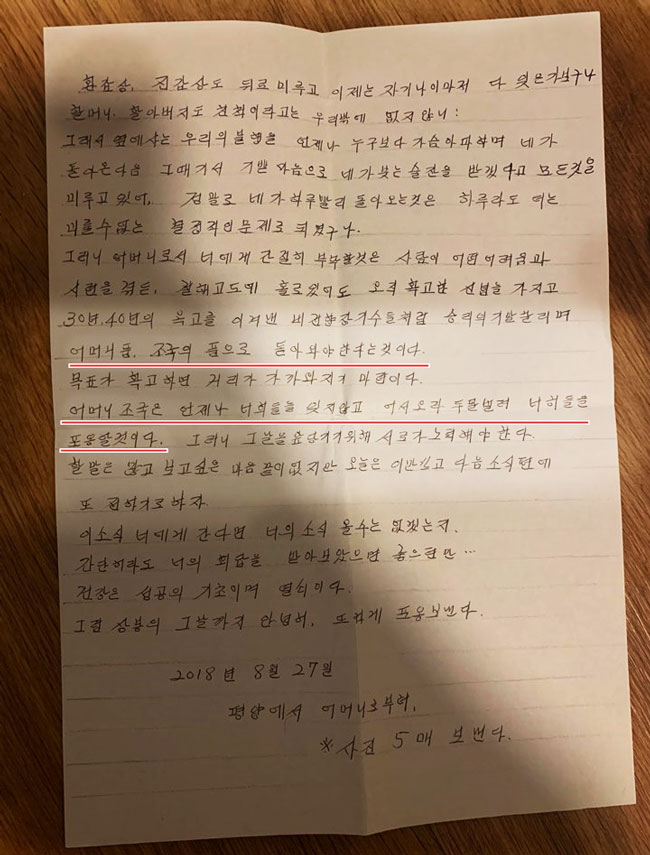 환갑상, 진갑상도 뒤로 미루고 이제는 자기나이마저 다 잊은가보구나
할머니, 할아버지도 친척이라고는 우리밖에 없지않니:
그래서 옆에서는 우리의불행을 언제나 누구보다가슴아파하며 네가
돌아온다음 그때가서 기쁜 마음으로 네가붓는술잔을 받겠다고 모든것을
미루고 있어, 정말로 네가하루빨리 돌아오는것은 하루라도 더는
미룰수없는 절박적인문제로 되였구나.
그러니 어머니로서 너에게 간절히 부탁할것은 사람이 어떤어려움과
시련을 겪든, 절해고도에 홀로있어도 오직 확고한 신념을 가지고
30년, 40년의 옥고를 이겨낸 비전향장기수들처럼 승리의기발날리며
어머니품, 조국의 품으로 돌아와야한다는것이다.
목표가 확고하면 거리가 가까와지기 마련이다.
어머니조국은 언제나 너희들을 잊지않고 어서오라 두팔벌려 너희들을
포옹할것이다. 그러니 그날을앞당기기위해 서로가노력해야 한다.
할말은 많고 보고싶은 마음 끝이없지만 오늘은 이만쓰고 다음소식편에
또 전하기로하자.
이소식 너에게 간다면 너의소식 올수는 없겠는지.
간단히라도 너의 회답을 받아보았으면 좋으련만…
건강은 성공의 기초이며 열쇠이다.
그럼 상봉의 그날까지 안녕히, 뜨겁게 포옹보낸다.
2018년 8월 27일
평양에서 어머니로부터,
※사진 5매 보낸다.